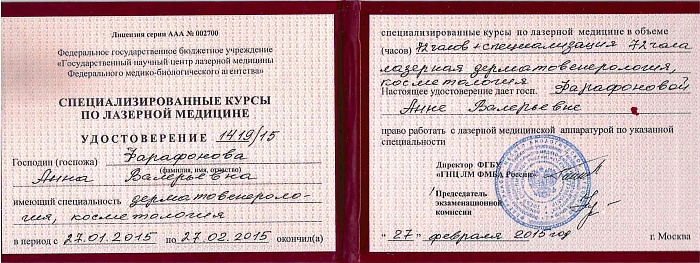 Лицензия серии ААА № 002700
Федеральное государственное бюджетное учреждение
«Государственный научный центр лазерной медицины
Федерального медико-биологического агентства»
СПЕЦИАЛИЗИРОВАННЫЕ КУРСЫ
ПО ЛАЗЕРНОЙ МЕДИЦИНЕ
УДОСТОВЕРЕНИЕ 1419/15
Господин (госпожа) Фарафонова
(фамилия, имя, отчество)
Анна Валерьевна
имеющий специальность дерматовенероло-
гия, косметология
в период с 27.01.2015 по 27.02.2015 окончил(а)
специализированные курсы по лазерной медицине в объеме
(часов) 72 часов + специализация 72 часа
лазерная дерматовенерология,
косметология
Настоящее удостоверение дает госп. Фарафоновой
Анне Валерьевне
право работать с лазерной медицинской аппаратурой по указанной
специальности
Директор ФГБУ
«ГНЦ ЛМ ФМБА России»
Председатель
экзаменационной
комиссии
"27" февраля 2015 год
г. Москва